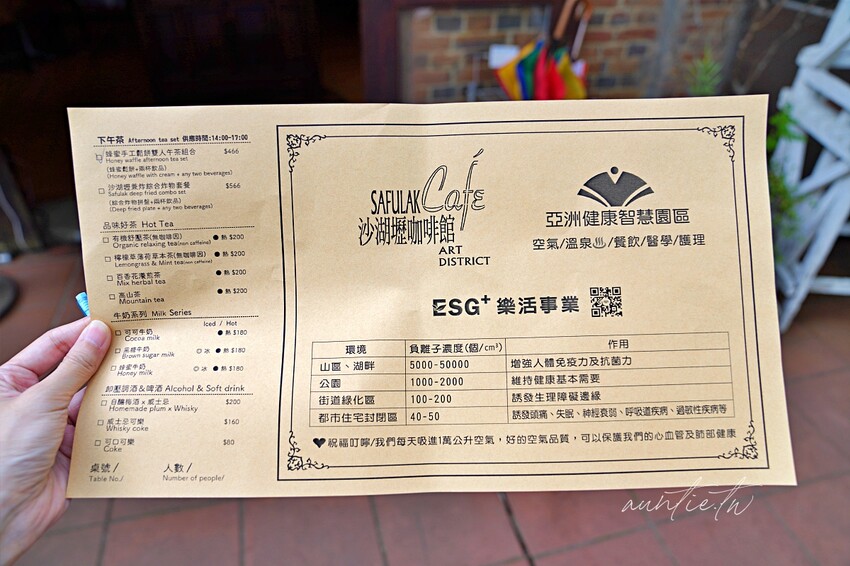 下午茶 Afternoon tea set 供應時間:14:00-17:00
□蜂蜜手工鬆餅雙人午茶組合 $466
Honey waffle afternoon tea set
(蜂蜜鬆餅+兩杯飲品)
(Honey waffle with cream + any two beverages)
□沙湖壢兼炸綜合炸物套餐 $566
Safulak deep fried combo set
(綜合炸物拼盤+兩杯飲品)
(Deep fried plate + any two beverages)
品味好茶 Hot Tea
□有機舒壓茶(無咖啡因) ●熱 $200
Organic relaxing tea(non caffeine)
□檸檬草薄荷草本茶(無咖啡因) ●熱 $200
Lemongrass & Mint tea(non caffeine)
□百香花漫煎茶 ●熱 $200
Mix herbal tea
□高山茶 ●熱 $200
Mountain tea
牛奶系列 Milk Series
Iced / Hot
□可可牛奶 ●熱 $180
Cocoa milk
□黑糖牛奶 ◎冰 ●熱 $180
Brown sugar milk
□蜂蜜牛奶 ◎冰 ●熱 $180
Honey milk
卸壓調酒&啤酒 Alcohol & Soft drink
□自釀梅酒 x 威士忌 $200
Homemade plum x Whisky
□威士忌可樂 $160
Whisky coke
□可口可樂 $80
Coke
桌號/ 人數/
Table No./ Number of people/
SAFULAK Café
沙湖壢咖啡館
ART
DISTRICT
亞洲健康智慧園區
空氣/溫泉♨/餐飲/醫學/護理
ESG+ 樂活事業
環境 負離子濃度(個/cm³) 作用
山區、湖畔 5000-50000 增強人體免疫力及抗菌力
公園 1000-2000 維持健康基本需要
街道綠化區 100-200 誘發生理障礙邊緣
都市住宅封閉區 40-50 誘發頭痛、失眠、神經衰弱、呼吸道疾病、過敏性疾病等
♥祝福叮嚀/我們每天吸進1萬公升空氣,好的空氣品質,可以保護我們的心血管及肺部健康
auntie.tw